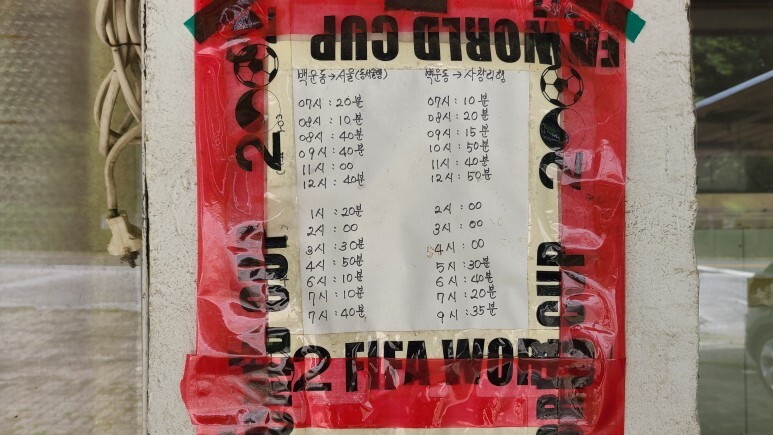 WORLD CUP
FA WORLD CUP
백운동→서울(동서울행)
07시:20분
08시:10분
08시:40분
09시:40분
11시:00
12시:40분
1시:20분
2시:00
3시:30분
4시:50분
6시:10분
7시:10분
7시:40분
백운동→사창리행
07시:10분
08시:20분
09시:15분
10시:50분
11시:40분
12시:50분
2시:00
3시:00
4시:00
5시:30분
6시:40분
7시:20분
9시:35분
200
200
CUP
CUP
2 FIFA WOR